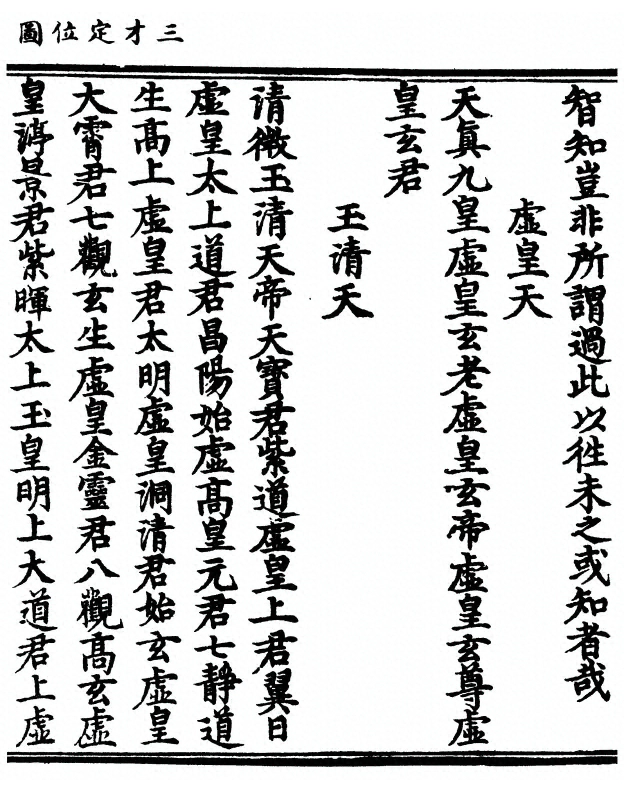 三才定位圖
智知豈非所謂過此以徃未之或知者哉
虛皇天
天眞九皇虛皇玄老虛皇玄帝虛皇玄尊虛
皇玄君
玉清天
清微玉清天帝天寶君紫道虛皇上君翼日
虛皇太上道君昌陽始虛高皇元君七靜道
生高上虛皇君太明虛皇洞清君始玄虛皇
大霄君七觀玄生虛皇金靈君八觀高玄虛
皇渟景君紫暉太上玉皇明上大道君上虛